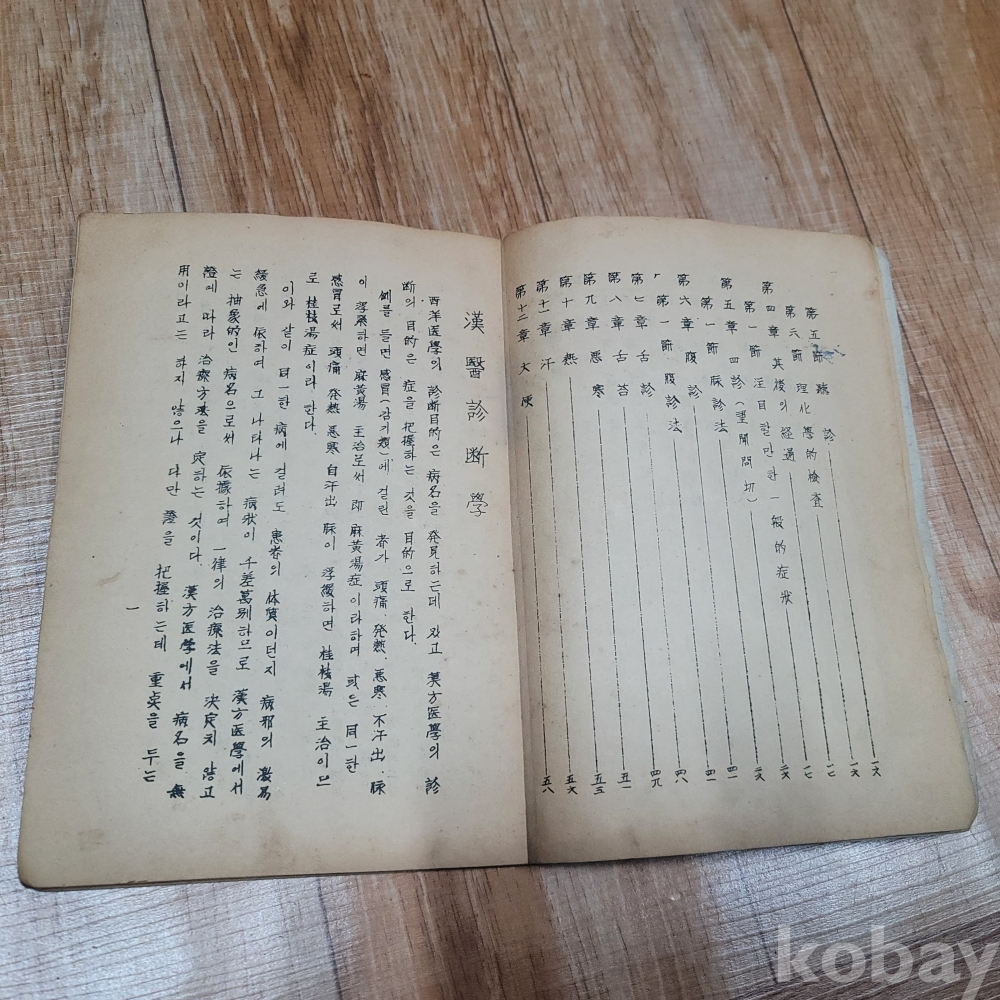 第五節 聽 診 一六
第六節 理化學的檢査 一七
第四章 其後의 経過 一七
第一節 注目할만한 一般的症狀 二六
第五章 四診(望聞問切) 二六
第一節 脉診法 四一
第六章 腹 診 四一
第一節 腹診法 四八
第七章 舌 診 四九
第八章 舌 苔 五一
第九章 悪 寒 五三
第十章 熱 五六
第十一章 汗 五八
第十二章 大 便
漢醫診断學
西洋医學의 診断目的은 病名을 発見하는데 있고 漢方医學의 診
断의 目的은 症을 把握하는 것을 目的으로 한다.
例를 들면 感冒(감기類)에 걸린 者가 頭痛、発熱、悪寒、不汗出、脉
이 浮緊하면 麻黃湯 主治로써 即 麻黃湯症이라하며 或은 同一한
感冒로써 頭痛 発熱 悪寒 自汗出 脉이 浮緩하면 桂枝湯 主治이므
로 桂枝湯症이라 한다.
이와 같이 同一한 病에 걸려도 患者의 体質이던지 病邪의 激易
緩急에 依하여 그 나타나는 病狀이 千差萬別하므로 漢方医學에서
는 抽象的인 病名으로써 依據하여 一律의 治療法을 決定치 않고
證에 따라 治療方法을 定하는 것이다. 漢方医学에서 病名을 無
用이라고는 하지 않으나 다만 證을 把握하는데 重点을 두는
一
kobay